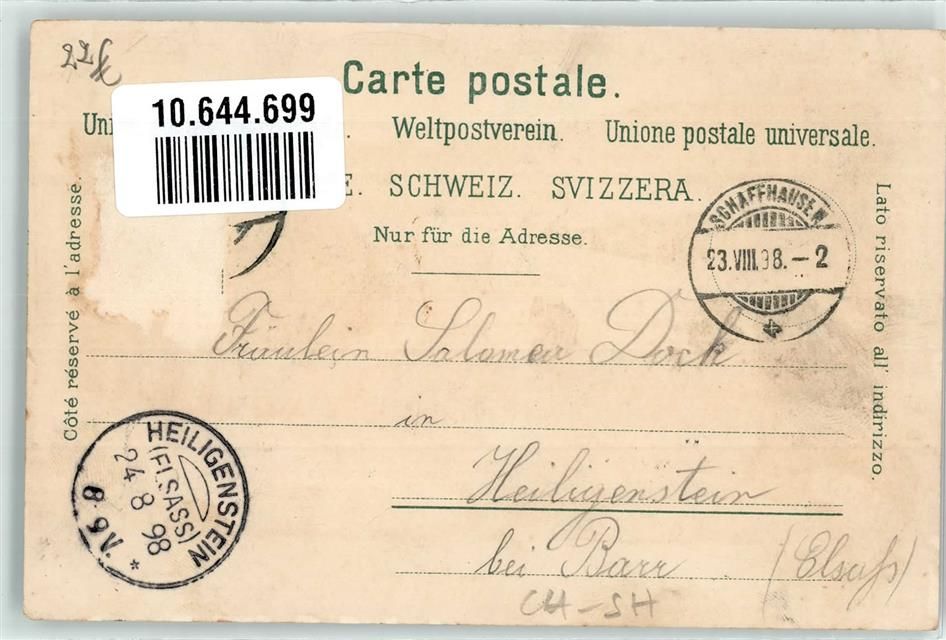 Carte postale.
10.644.699
Weltpostverein. Unione postale universale.
SCHWEIZ. SVIZZERA.
Nur für die Adresse.
Côté réservé à l'adresse.
Lato riservato all' indirizzo.
SCHAFFHAUSEN
23.VIII.98.–2
Fräulein Salomea Dock
in
Heiligenstein
bei Barr (Elsaß)
HEILIGENSTEIN
(ELSASS)
24 8 98
8-9V.
*
CH-SH